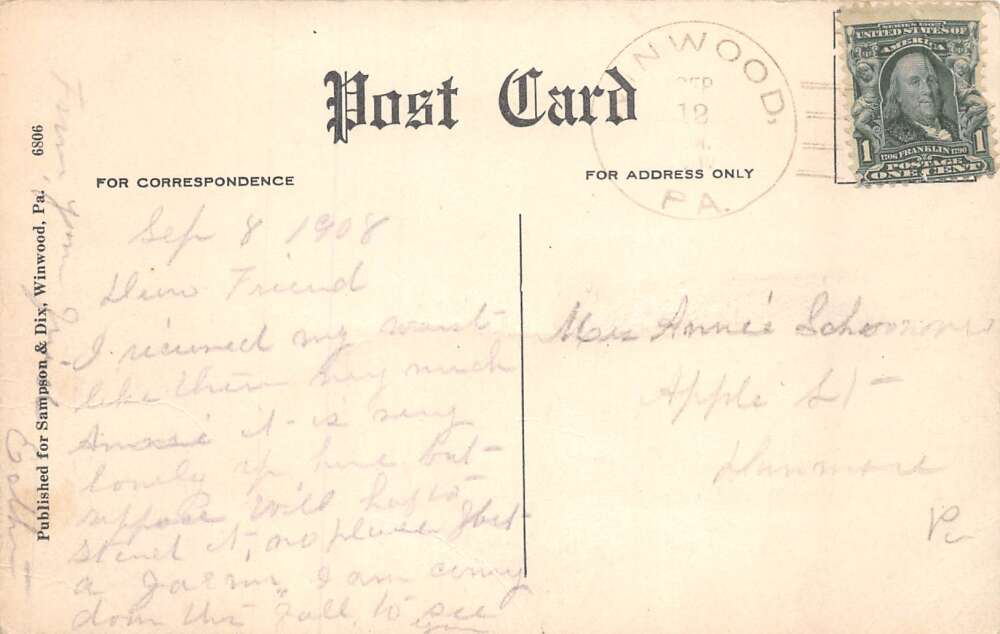 Post Card
FOR CORRESPONDENCE
FOR ADDRESS ONLY
WINWOOD,
SEP
12
PA.
SERIES 1902
UNITED STATES OF
AMERICA
1706 FRANKLIN 1790
1 1
POSTAGE
ONE CENT
6806
Published for Sampson & Dix, Winwood, Pa.
Sep 8 1908
Friend
I received my waist
like them very much
it is very
lonely up here but
suppose will haf to
stend it, no place
a I am comy
down this Fall to see
you
From your
Annie
Apple St
Dunmore
Pa